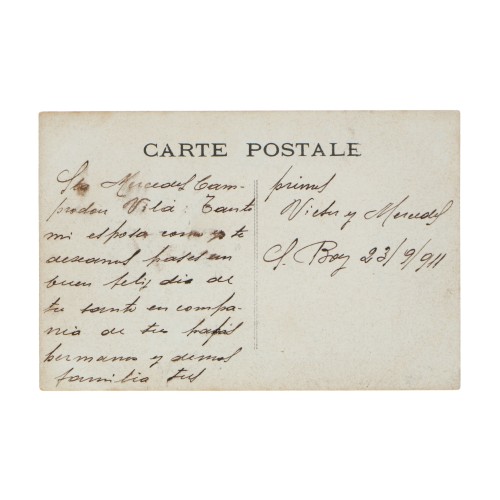 CARTE POSTALE
Sta Mercedes Cam-
prodon Vilá: Tanto
mi esposa como yo te
deseamos pases un
buen feliz dia de
tu santo en compa-
ñia de tus papás
hermanos y demas
familia tus
primos
Victor y Mercedes
S. Boy 23/9/911